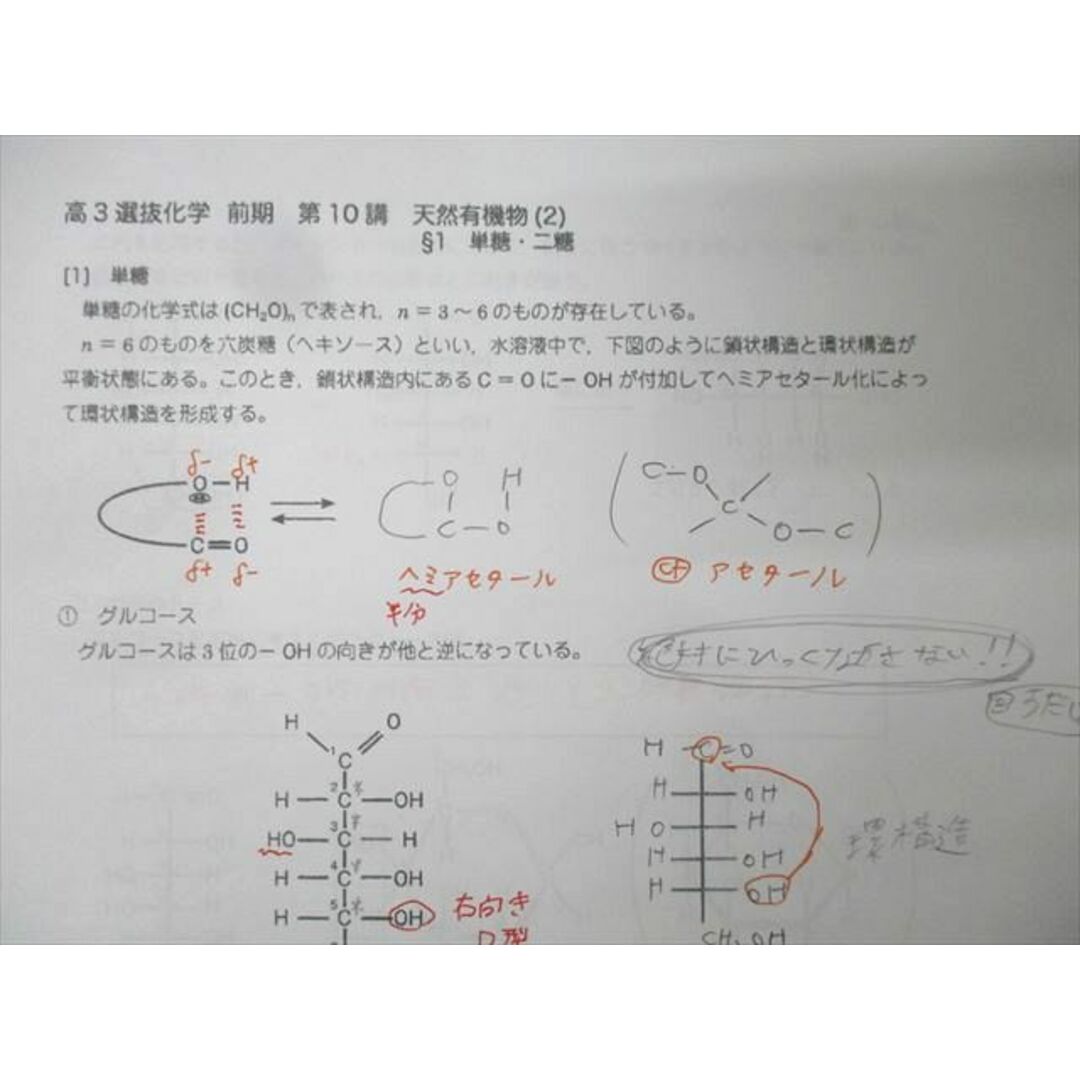 高3選抜化学 前期 第10講 天然有機物(2)
§1 単糖・二糖
[1] 単糖
単糖の化学式は(CH₂O)ₙで表され，n = 3～6のものが存在している。
n = 6のものを六炭糖（ヘキソース）といい，水溶液中で，下図のように鎖状構造と環状構造が
平衡状態にある。このとき，鎖状構造内にあるC = Oに− OHが付加してヘミアセタール化によっ
て環状構造を形成する。
δ- δ+
O−H
C=O
δ+ δ-
O H
C−O
ヘミアセタール
半分
C−O
C
O−C
cf アセタール
① グルコース
グルコースは3位の− OHの向きが他と逆になっている。
にひっくりかえさない!!
H O
1 C
H − 2 C − OH
HO − 3 C − H
H − 4 C − OH
H − 5 C − OH
右向き
D型
H − C=O
H OH
HO H
H OH
H OH
CH₂OH
環構造